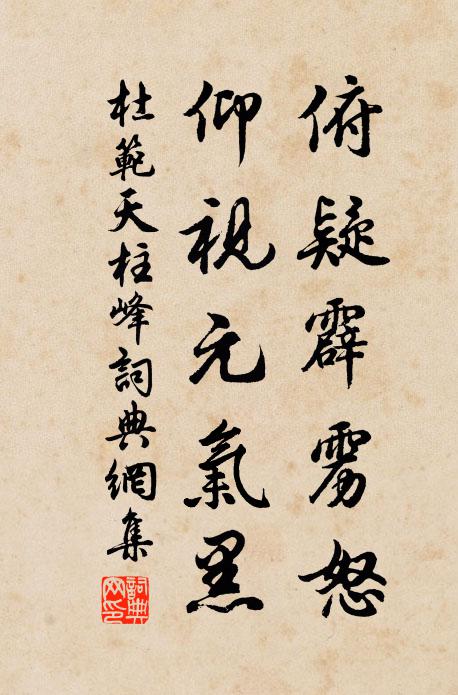 俯疑霹雳怒
仰視元氣黑
杜範天柱峰詞典網集
詞典网印